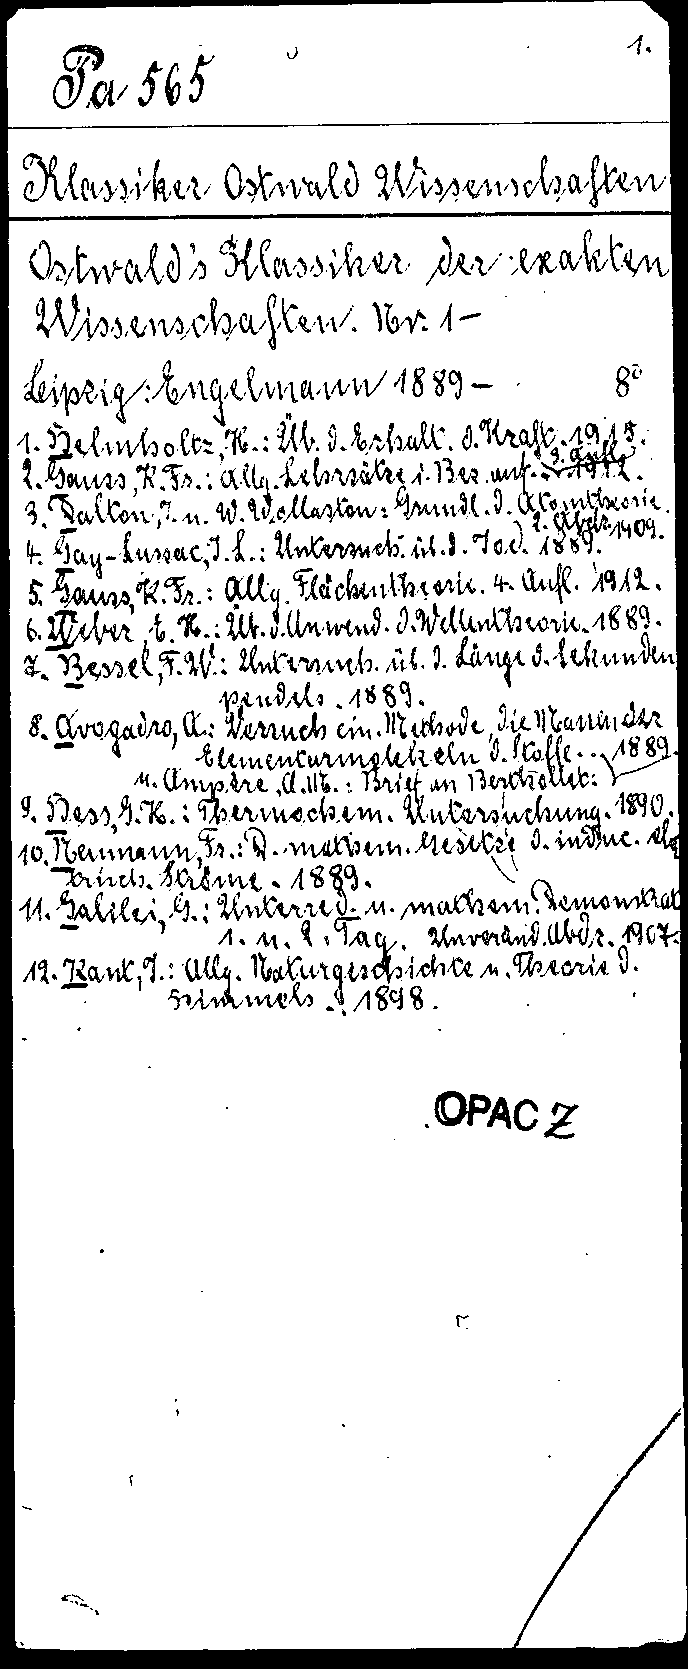 1.
Pa 565
Klassiker Ostwald Wissenschaften
Ostwald's Klassiker der exakten
Wissenschaften. Nr. 1-
Leipzig: Engelmann 1889- 8°
1. Helmholtz, H.: Üb. d. Erhalt. d. Kraft. 1915.
2. Gauss, K. Fr.: Allg. Lehrsätze i. Bez. auf... 3. Aufl. 1912.
3. Dalton, J. u. W. Wollaston: Grundl. d. Atomtheorie.
2. Abdr. 1909.
4. Gay-Lussac, J. L.: Untersuch. üb. d. Jod. 1889.
5. Gauss, K. Fr.: Allg. Flächentheorie. 4. Aufl. 1912.
6. Weber, E. H.: Üb. d. Anwend. d. Wellentheorie. 1889.
7. Bessel, F. W.: Untersuch. üb. d. Länge d. Sekunden
pendels. 1889.
8. Avogadro, A.: Versuch ein. Methode, die Massen der
Elementarmolekeln d. Stoffe... 1889.
u. Ampère, A. M.: Brief an Berthollet:
9. Hess, G. H.: Thermochem. Untersuchung. 1890.
10. Neumann, Fr.: D. mathem. Gesetze d. induc. elek
trisch. Ströme. 1889.
11. Galilei, G.: Unterred. u. mathem. Demonstrat
1. u. 2. Tag. Unveränd. Abdr. 1907.
12. Kant, I.: Allg. Naturgeschichte u. Theorie d.
Himmels. 1898.
OPAC Z